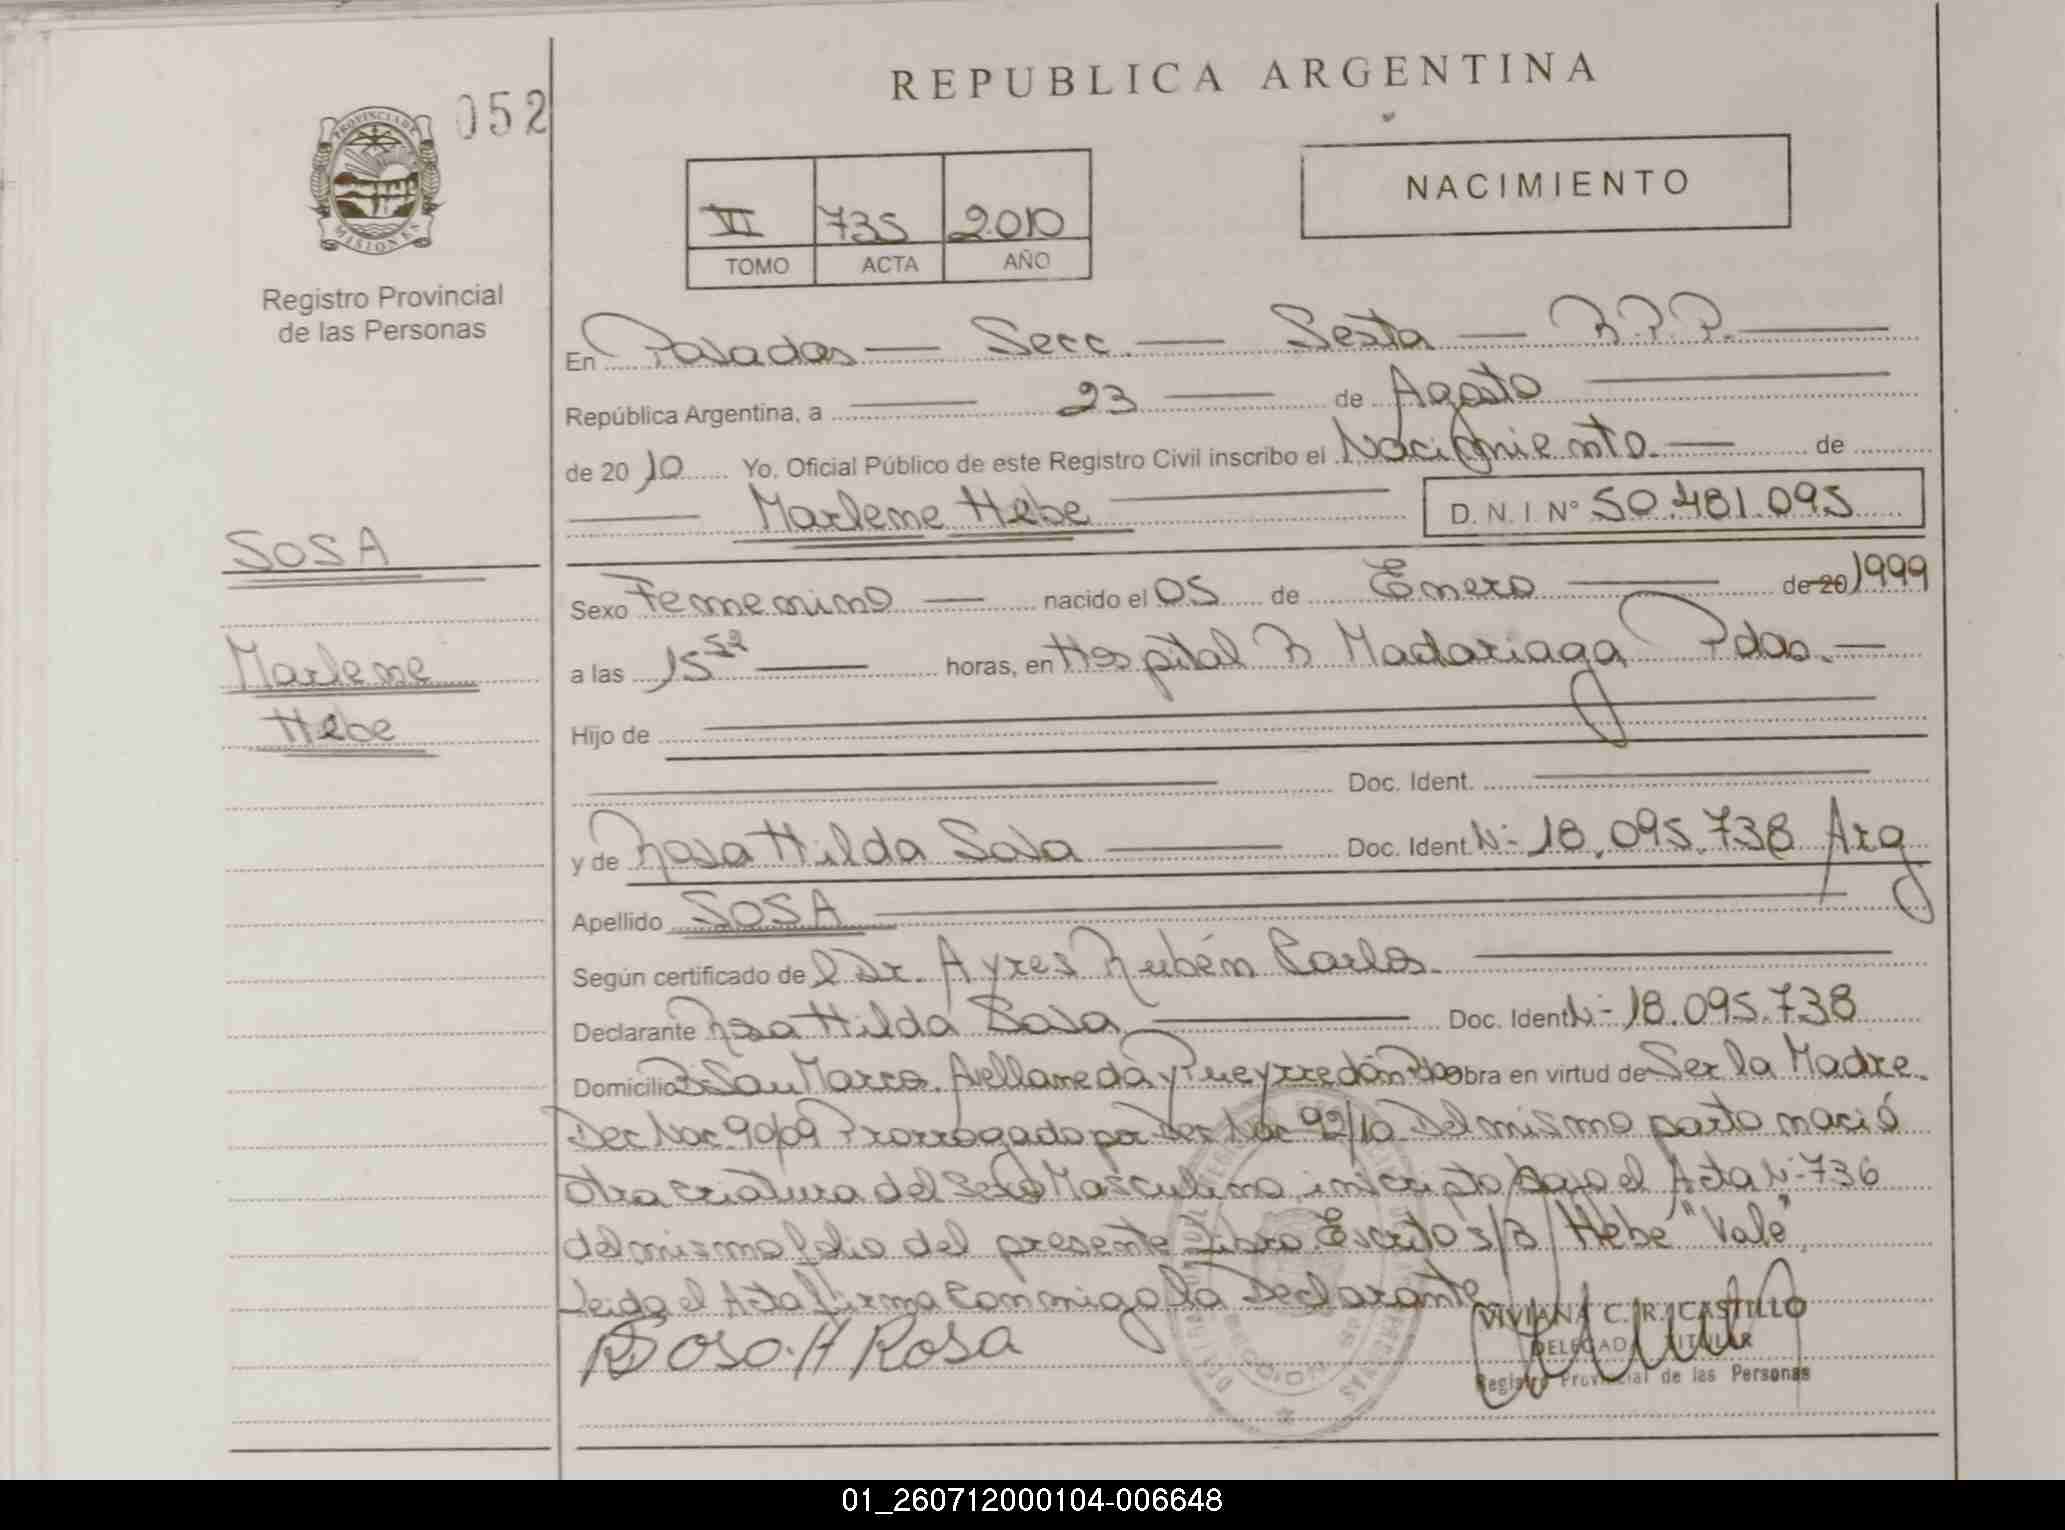 REPUBLICA ARGENTINA
052
PROVINCIA DE
MISIONES
Registro Provincial
de las Personas
NACIMIENTO
VI 735 2010
TOMO ACTA AÑO
En Posadas — Secc. — Sexta — R.P.P.
República Argentina, a 23 de Agosto
de 2010 Yo. Oficial Público de este Registro Civil inscribo el Nacimiento. de
Marlene Hebe D.N.I Nº 50.481.095
SOSA
Marlene
Hebe
Sexo Femenino nacido el 05 de Enero de 20 1999
a las 15 52 horas, en Hospital R Madariaga Pdas.
Hijo de
Doc. Ident.
y de Rosa Hilda Sosa Doc. Ident. Nº 18.095.738 Arg
Apellido SOSA
Según certificado del Dr. Ayres Rubén Carlos.
Declarante Rosa Hilda Sosa Doc. Ident Nº 18.095.738
Domicilio San Marco. Avellaneda y Pueyrredón obra en virtud de Ser la Madre.
Dec Nac 90/09 Prorrogado por Dec Nac 92/10 Del mismo parto nació
otra criatura del sexo Masculino, inscripto bajo el Acta Nº 736
del mismo folio del presente Libro. Escrito s/B/ Hebe "Vale",
Leida el Acta firma conmigo la Declarante
Sosa. H Rosa
VIVIANA C. R. CASTILLO
DELEGADA TITULAR
Registro Provincial de las Personas
01_260712000104-006648